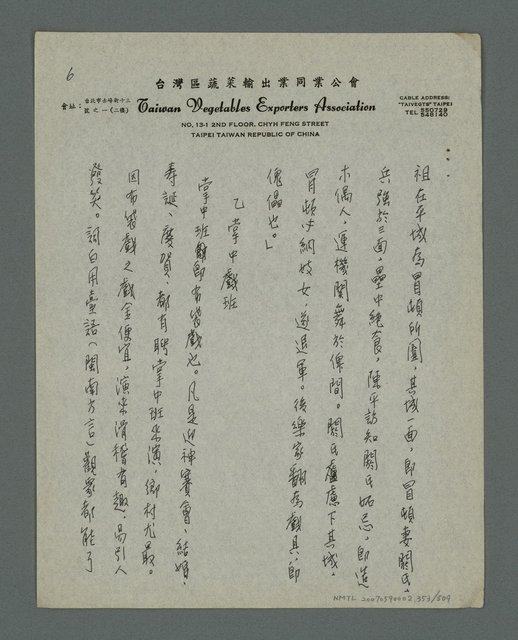 6
台灣區蔬菜輸出業同業公會
會址：台北市赤峰街十三號之一(二樓)
Taiwan Vegetables Exporters Association
NO. 13-1 2ND FLOOR, CHYH FENG STREET
TAIPEI TAIWAN REPUBLIC OF CHINA
CABLE ADDRESS:
"TAIVEGTS" TAIPEI
TEL 550729
548140
祖在平城為冒頓所圍，其城一面，即冒頓妻閼氏，
兵強於三面，壘中絕食，陳平訪知閼氏妬忌，即造
木偶人，運機関舞於陴間。閼氏望慮下其城，
冒頓必納妓女，遂退軍。後樂家翻為戲具，即
傀儡也。」
乙 掌中戲班
掌中班即布袋戲也。凡是迎神賽會、結婚、
壽誕、慶賀，都有聘掌中班來演，鄉村尤最。
因布袋戲之戲金便宜，演來滑稽有趣，易引人
發笑。詞白用臺語(閩南方言)觀眾都能了
NMTL 20070590002 353/509